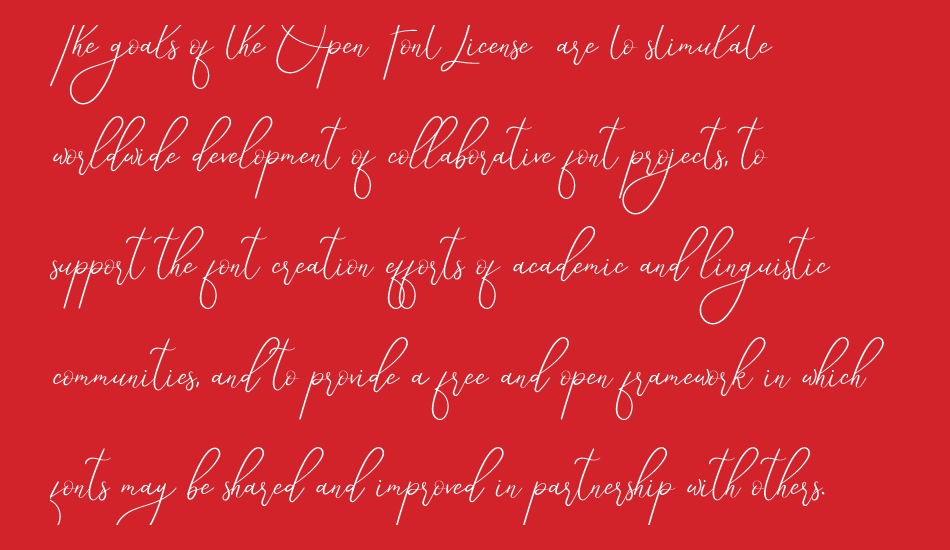 The goals of the Open Font License are to stimulate
worldwide development of collaborative font projects, to
support the font creation efforts of academic and linguistic
communities, and to provide a free and open framework in which
fonts may be shared and improved in partnership with others.